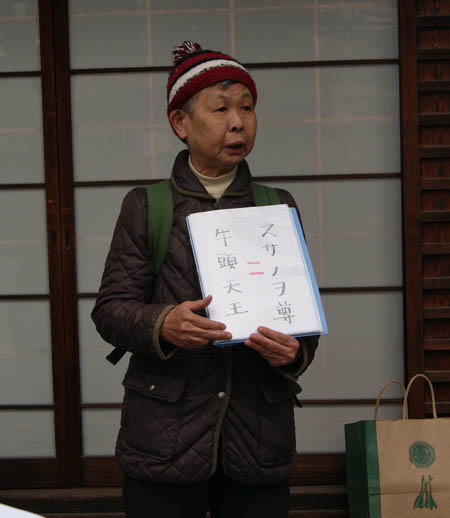 スサノヲ尊
=
牛頭天王